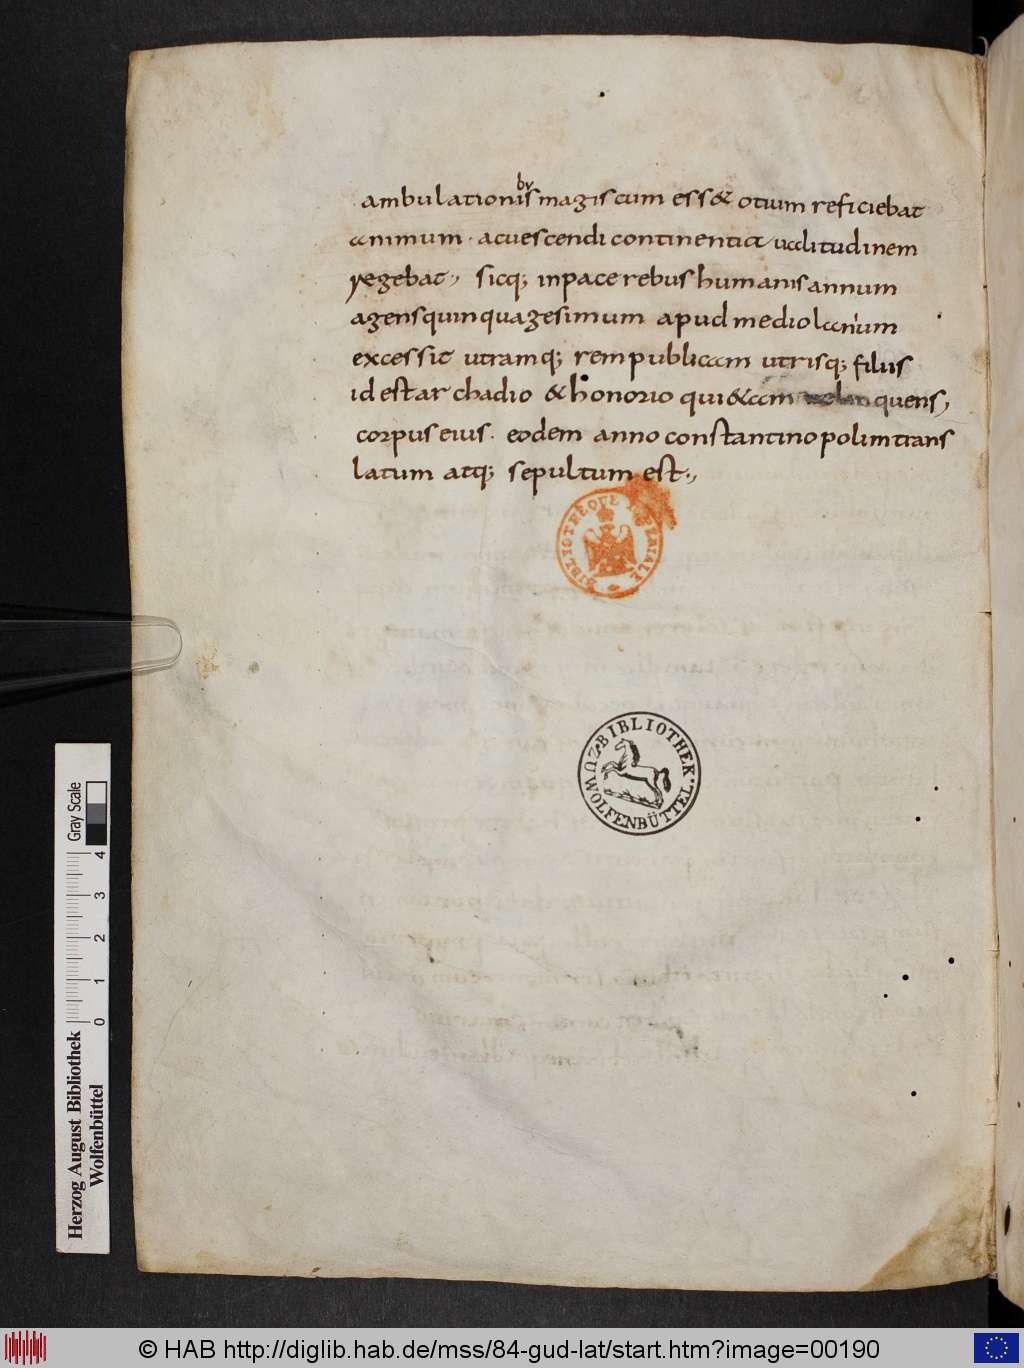 ambulationibus magis cum ess& otium reficiebat
animum · acuescendi continentia ualitudinem
regebat, sicq; inpace rebus humanis annum
agens quinquagesimum apud mediolanium
excessit utramq; rempublicam utrisq; filiis
id est archadio & honorio qui&am quens,
corpus eius. eodem anno constantinopolim trans
latum atq; sepultum est.,
BIBLIOTHEQUE IMPERIALE
BIBLIOTHEK.
ZU WOLFENBÜTTEL.
Gray Scale
0 1 2 3 4
Herzog August Bibliothek
Wolfenbüttel
© HAB http://diglib.hab.de/mss/84-gud-lat/start.htm?image=00190